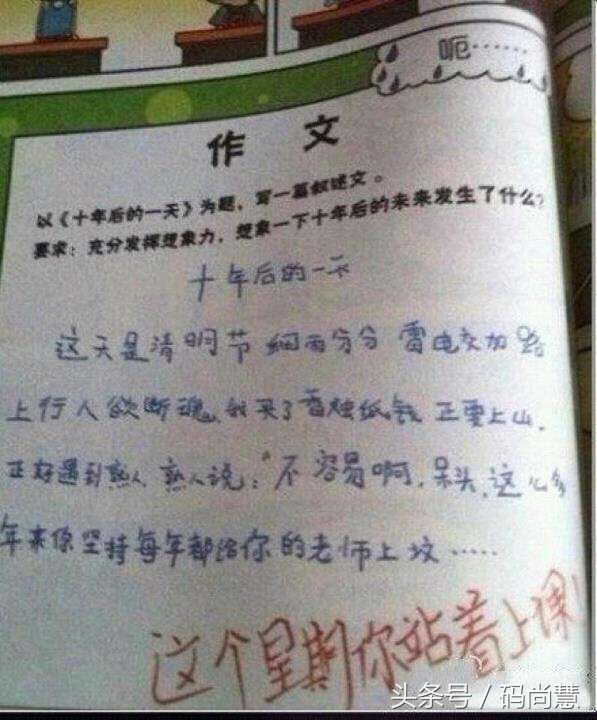 呃……
作 文
以《十年后的一天》为题，写一篇叙述文。
要求：充分发挥想象力，想象一下十年后的未来发生了什么？
十年后的一天
这天是清明节 细雨分分 雷电交加 路
上行人欲断魂、我买了香烛纸钱 正要上山，
正好遇到熟人 熟人说：“不容易啊，呆头，这么多
年来你坚持每年都给你的老师上坟……
这个星期你站着上课！
头条号／码尚慧